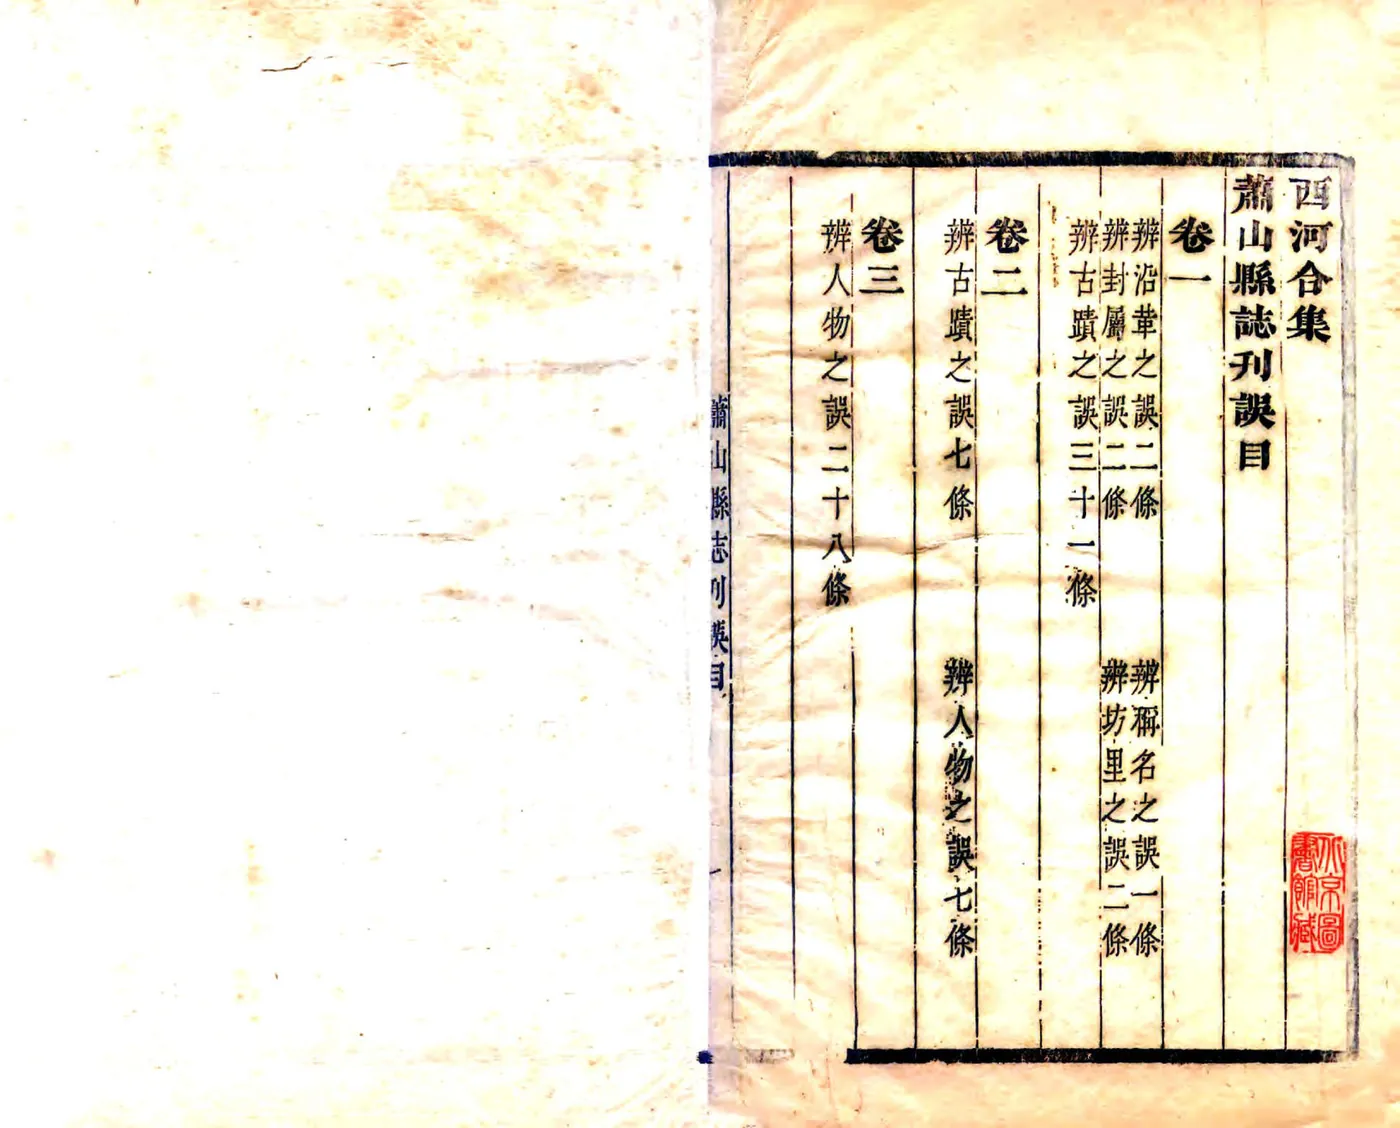 西河合集
蕭山縣誌刊誤目
卷一
辨沿革之誤二條　辨稱名之誤一條
辨封屬之誤二條　辨坊里之誤二條
辨古蹟之誤三十一條
卷二
辨古蹟之誤七條　辨人物之誤七條
卷三
辨人物之誤二十八條
蕭山縣志刊誤目
一
北京圖書館藏